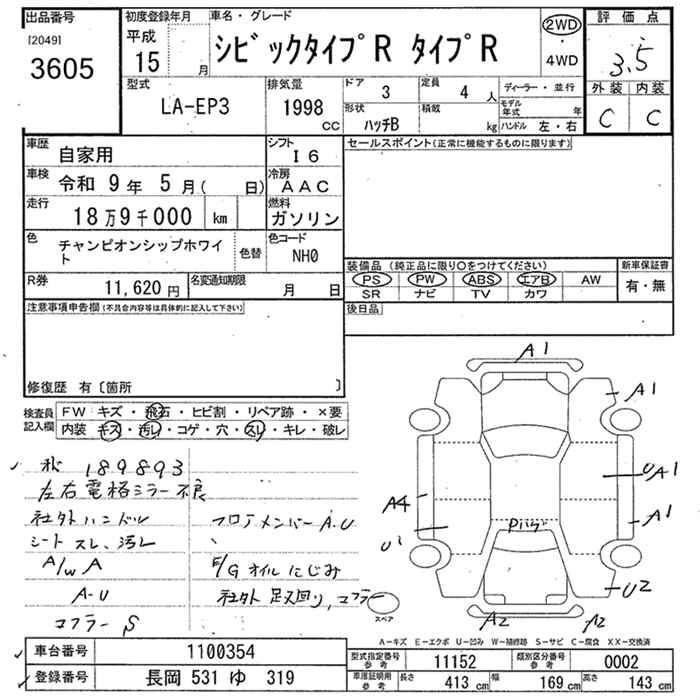 出品番号
[2049]
3605
初度登録年月
平成
15 月
車名・グレード
シビックタイプR タイプR
2WD
・
4WD
評価点
3.5
外装 内装
C C
型式
LA-EP3
排気量
1998
cc
ドア 3
定員 4 人
形状
ハッチB
積載
kg
ディーラー・並行
モデル年式 年
ハンドル 左・右
車歴
自家用
シフト
I6
車検 令和 9年 5月( 日)
冷房
AAC
走行
18万9千000 km
燃料
ガソリン
色
チャンピオンシップホワイ
ト
色替
色コード
NH0
R券
11,620円
名変通知期限
月 日
セールスポイント(正常に機能するものに限ります)
装備品 (純正品に限り○をつけてください)
新車保証書
PS PW ABS エアB AW
SR ナビ TV カワ
有・無
後日品
注意事項申告欄(不具合内容等は具体的に記入して下さい)
修復歴 有〔箇所 〕
検査員
記入欄
FW キズ・飛石・ヒビ割・リペア跡・×要
内装 キズ・汚レ・コゲ・穴・スレ・キレ・破レ
189893
左右電格ミラー不良
社外ハンドル
フロアメンバーA.U
シートスレ、汚レ
A/W A
E/Gオイルにじみ
A-U
社外足廻り、マフラー
マフラーS
A1
A1
UA1
A4
A1
U1
Pバゲ
U2
A2
A2
スペア
A-キズ E-エクボ U-凹み W-補修跡 S-サビ C-腐食 XX-交換済
車台番号
1100354
登録番号
長岡 531 ゆ 319
型式指定番号
参考
11152
類別区分番号
参考
0002
車庫証明用
参考
長さ 413 cm
幅 169 cm
高さ 143 cm